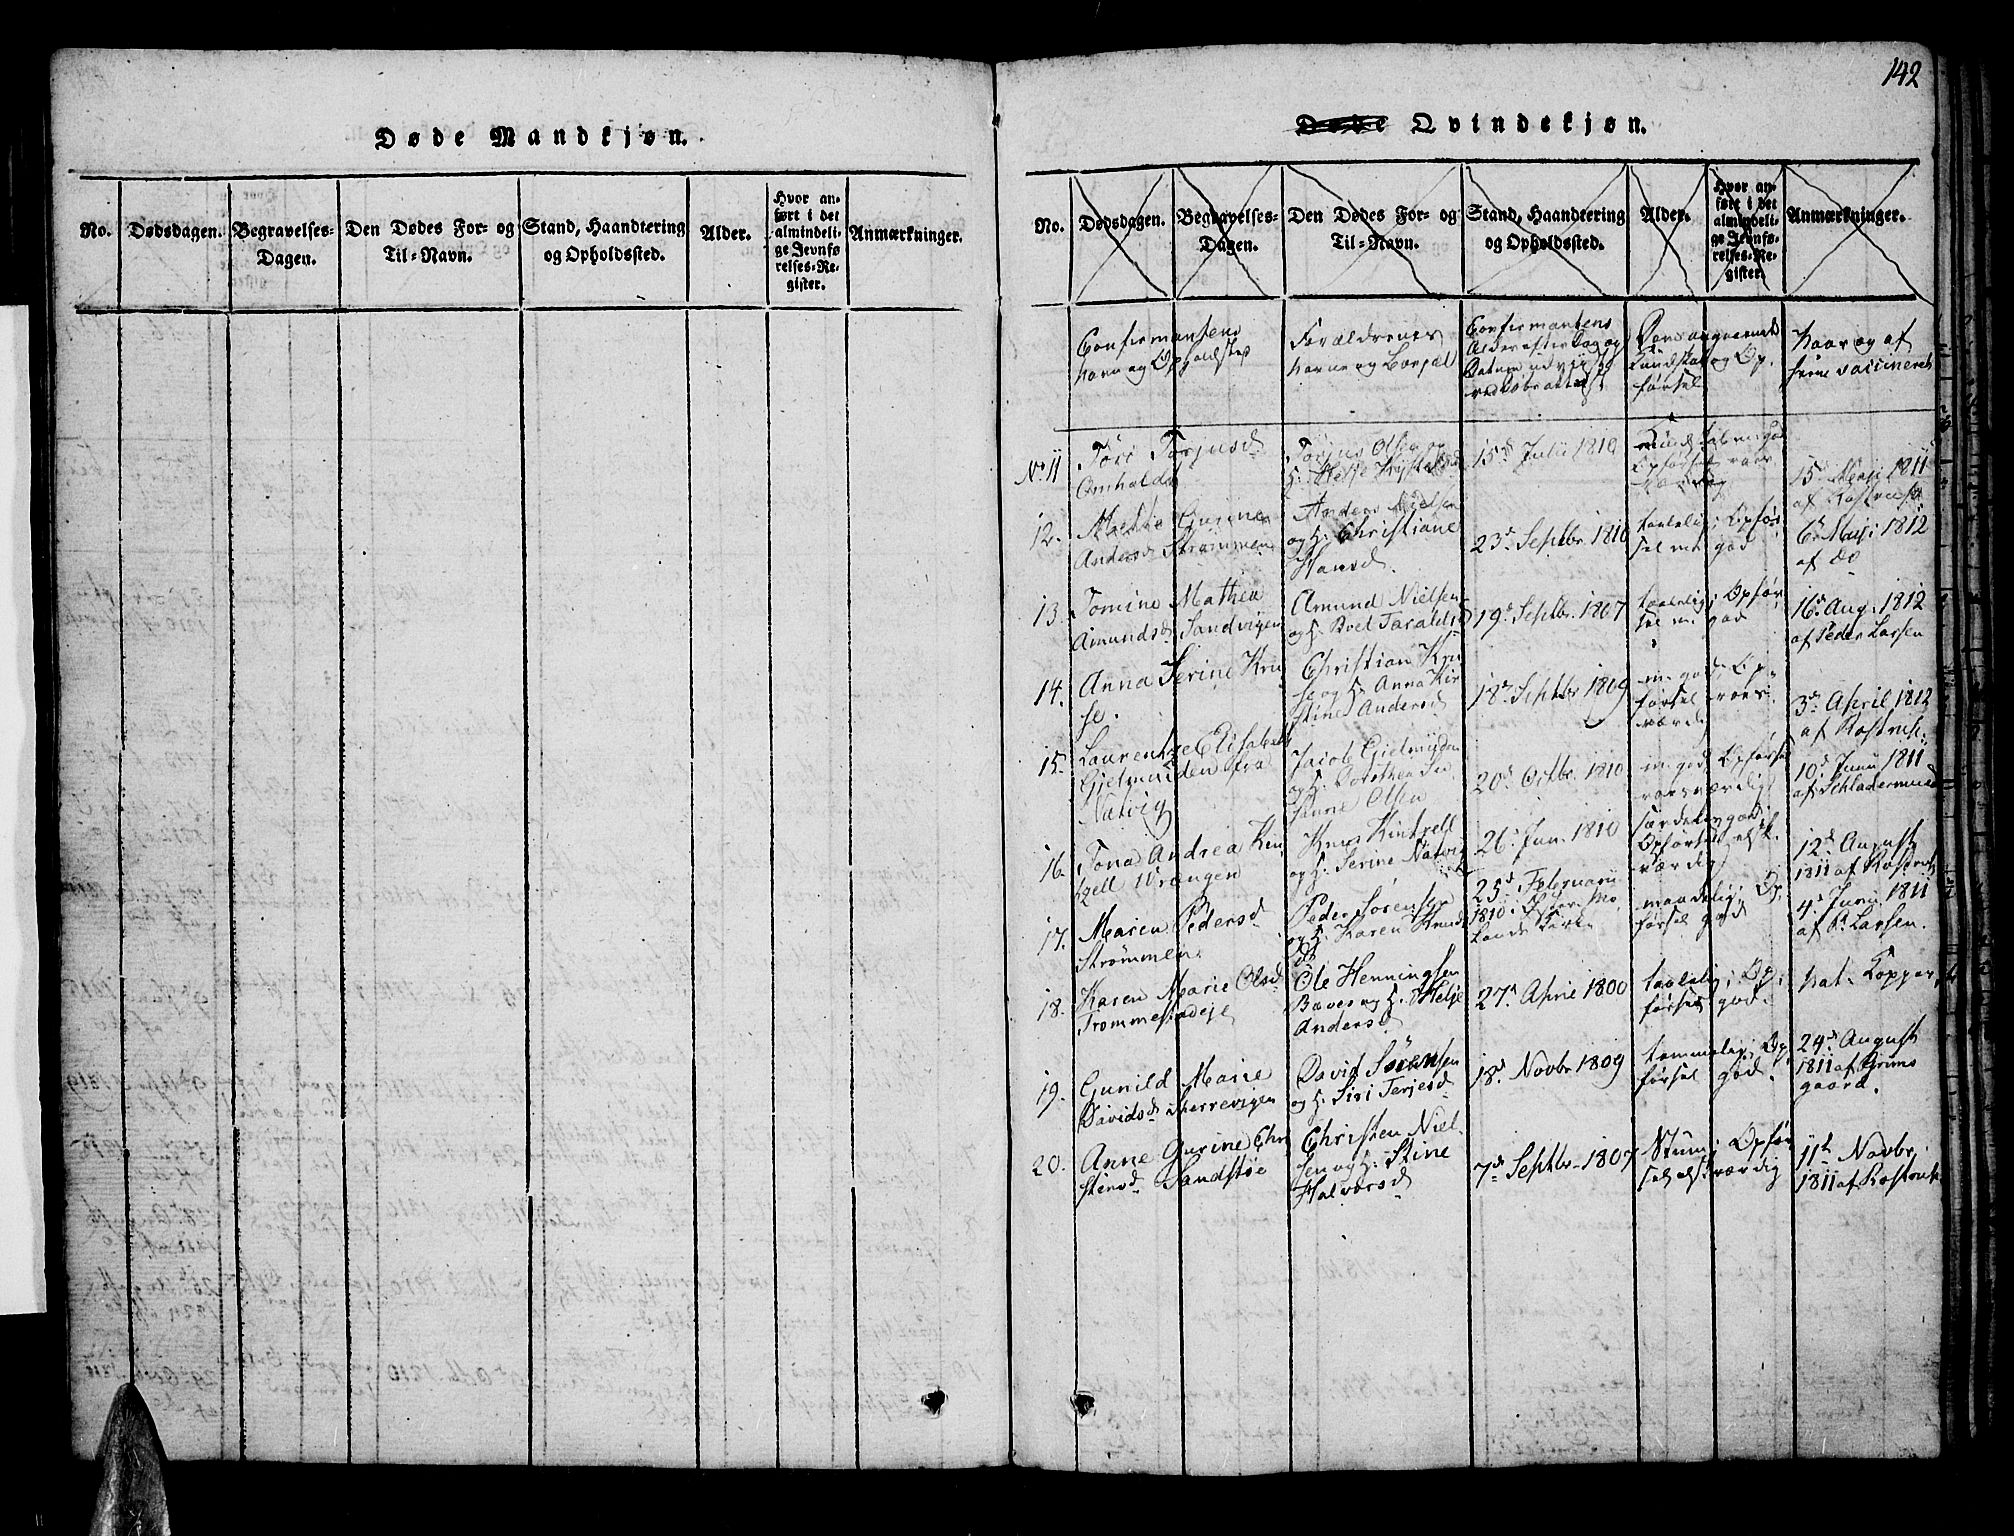 142
Døde Mandkjøn.
No.
Dødsdagen.
Begravelses-
Dagen.
Den Dødes For- og
Til-Navn.
Stand, Haandtering
og Opholdssted.
Alder.
Hvor an-
ført i det
almindeli-
ge Jevnfø
relses-Re-
gister.
Anmærkninger.
Døde Qvindekjøn.
No.
Dødsdagen.
Begravelses-
Dagen.
Den Dødes For- og
Til-Navn.
Stand, Haandtering
og Opholdssted.
Alder.
Hvor an-
ført i det
almindeli-
ge Jevnfø-
relses-Re-
gister.
Anmærkninger.
Confirmantens
Navn og Opholdsted
Forældrenes
Navne og
Confirmantens
Alder efter Dag og
Datum udviist
ved Døbeattest
Kundskab og Op-
førsel
Naar og af
hvem vaccineret
No. 11
Töri Torjusd
Omholdt
Torjus Olsen og
H. Helje
15d Julii 1810
Kundskab m: god
Opførsel roes
værdig
15d Maji 1811
af Rostrup
12.
Mette Gurine
Andersd Strømmen
Anders Nielsen
og H. Christiane
Hansd.
23d Septbr. 1810
taalelig; Opfør
sel m: god
6d Maji 1812
af do
13.
Tomine Mathea
Amundsd Sandvigen
Amund Nielsen
og H. Boel Taraldsd
19d Septbr. 1807
taalelig; Opfør
sel m: god
16d Aug. 1812
af Peder Larsen
14.
Anna Serine Kru
se.
Christian Kru
se og H. Anna Kir
stine Andersd
18d Septbr 1809
m: god; Op-
førsel roes
værdig
3d April 1812
af Rostrup.
15.
Laurentze Elisabeth
Gjelmuiden fra
Natvig
Jacob Gjelmyden
og H. Dorothea Su
sanne Olsen
20d Octbr. 1810
m: god; Opførsel
roesværdig
10d Junii 1811
af Schladermund
16.
Tona Andrea Kin
tzell Wrængen
Knus Kintzell
og H. Serine Natvig
26d Jun. 1810
særdeles god
Opførsel elsk.
værdig
12d August
1811 af Rostrup
17.
Maren Pedersd
Strømmen
Peder Sörensen
og H. Karen Knuds
d
25d Februarii
1810 i Øster Mo
lands Kirke
maadelig; Op
førsel god
4d Junii 1811
af P. Larsen.
18.
Karen Marie Olsd
Trommestadeje
Ole Henningsen
Baaes og H. Helje
Andersd
27d April 1800
taalelig; Op
førsel god.
nat. Kopper
19.
Gunild Marie
Davidsd Skerrevigen
David Sörensen
og H. Siri Terjesd
18d Novbr 1809
temmelig; Op
førsel god.
24d August
1811 af Grims
gaard.
20.
Anne Gurine Chri
stensd Sandstøe
Christen Niel-
sen og H. Stine
Halvorsd
7d Septbr. 1807
Stum; Opför
sel elskværdig
11t Novbr
1811 af Rostrup